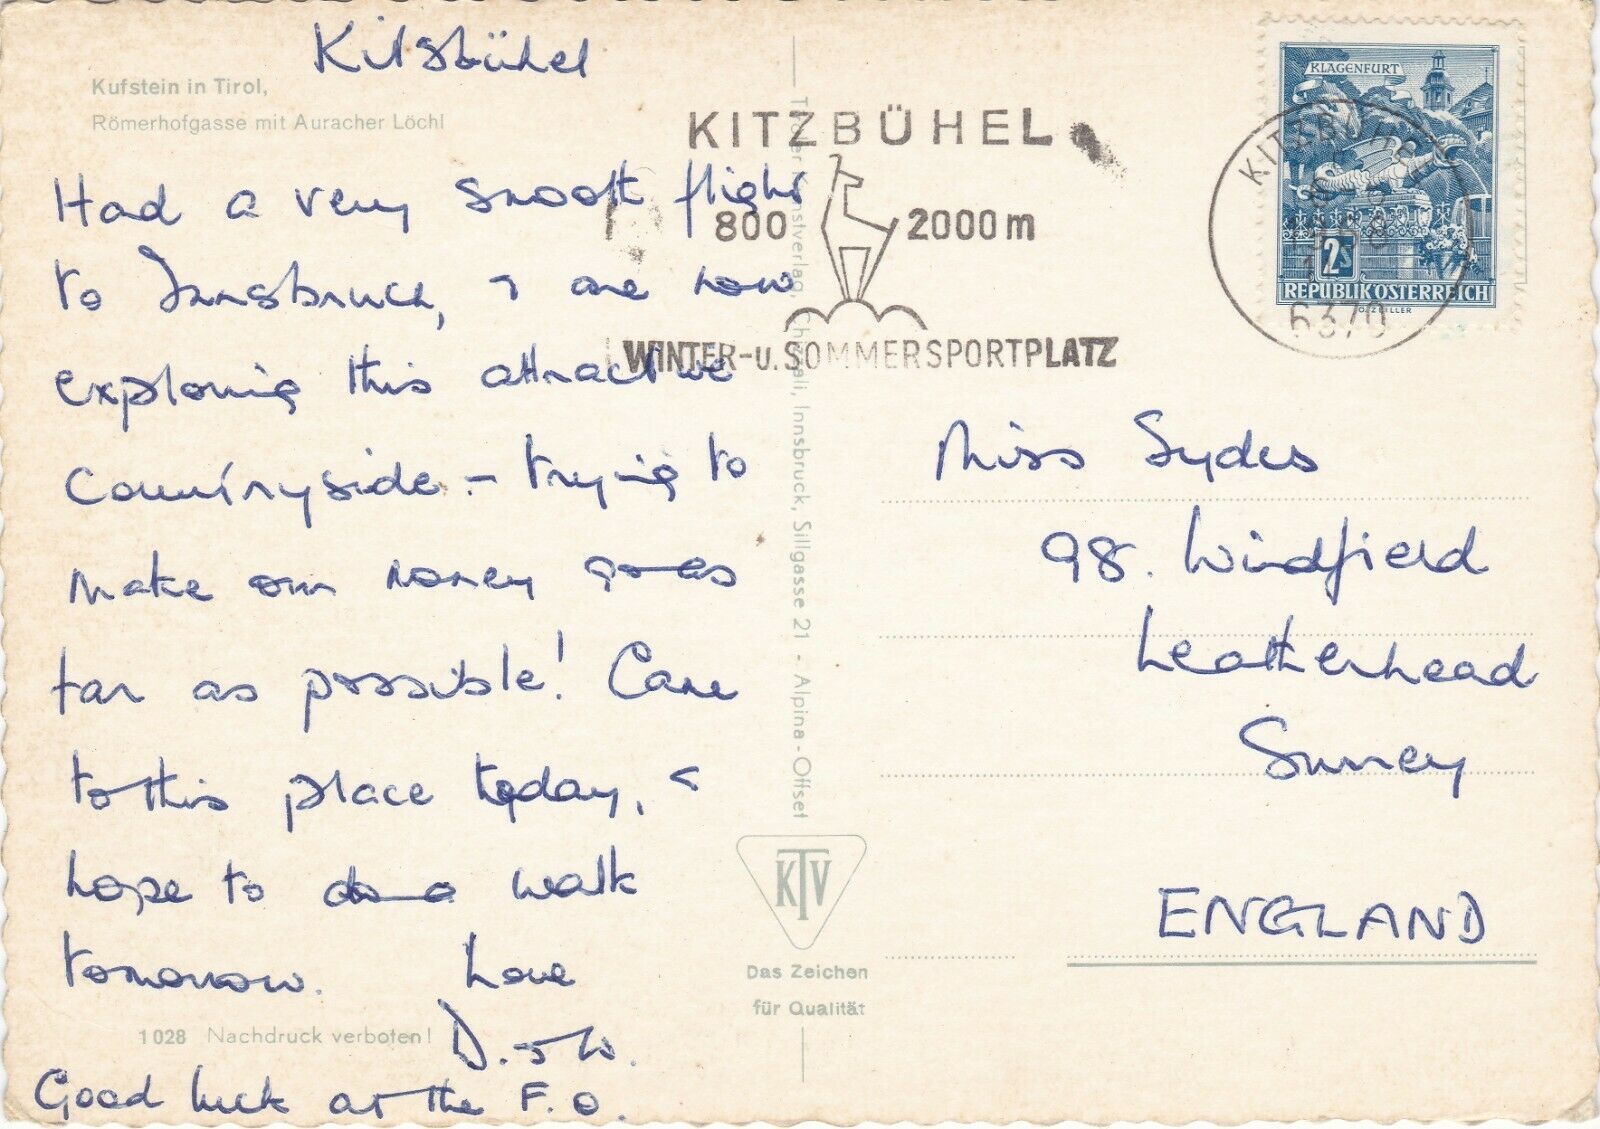 Kitsbühel
Kufstein in Tirol,
Römerhofgasse mit Auracher Löchl
Had a very smooth flight
to Innsbruck, & are now
exploring this attractive
Countryside - trying to
make our money go as
far as possible! Came
to this place today, &
hope to do a walk
tomorrow. Love
D. & W.
Good luck at the F.O.
1028 Nachdruck verboten!
Tiroler Kunstverlag, Chizzali, Innsbruck, Sillgasse 21 - Alpina-Offset
KTV
Das Zeichen
für Qualität
KITZBÜHEL
800 2000 m
WINTER-u. SOMMERSPORTPLATZ
KLAGENFURT
2S
REPUBLIK ÖSTERREICH
O. ZEILLER
KITZBÜHEL
6370
Miss Sydes
98. Windfield
Leatherhead
Surrey
ENGLAND